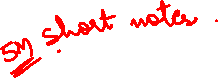 5M short notes.